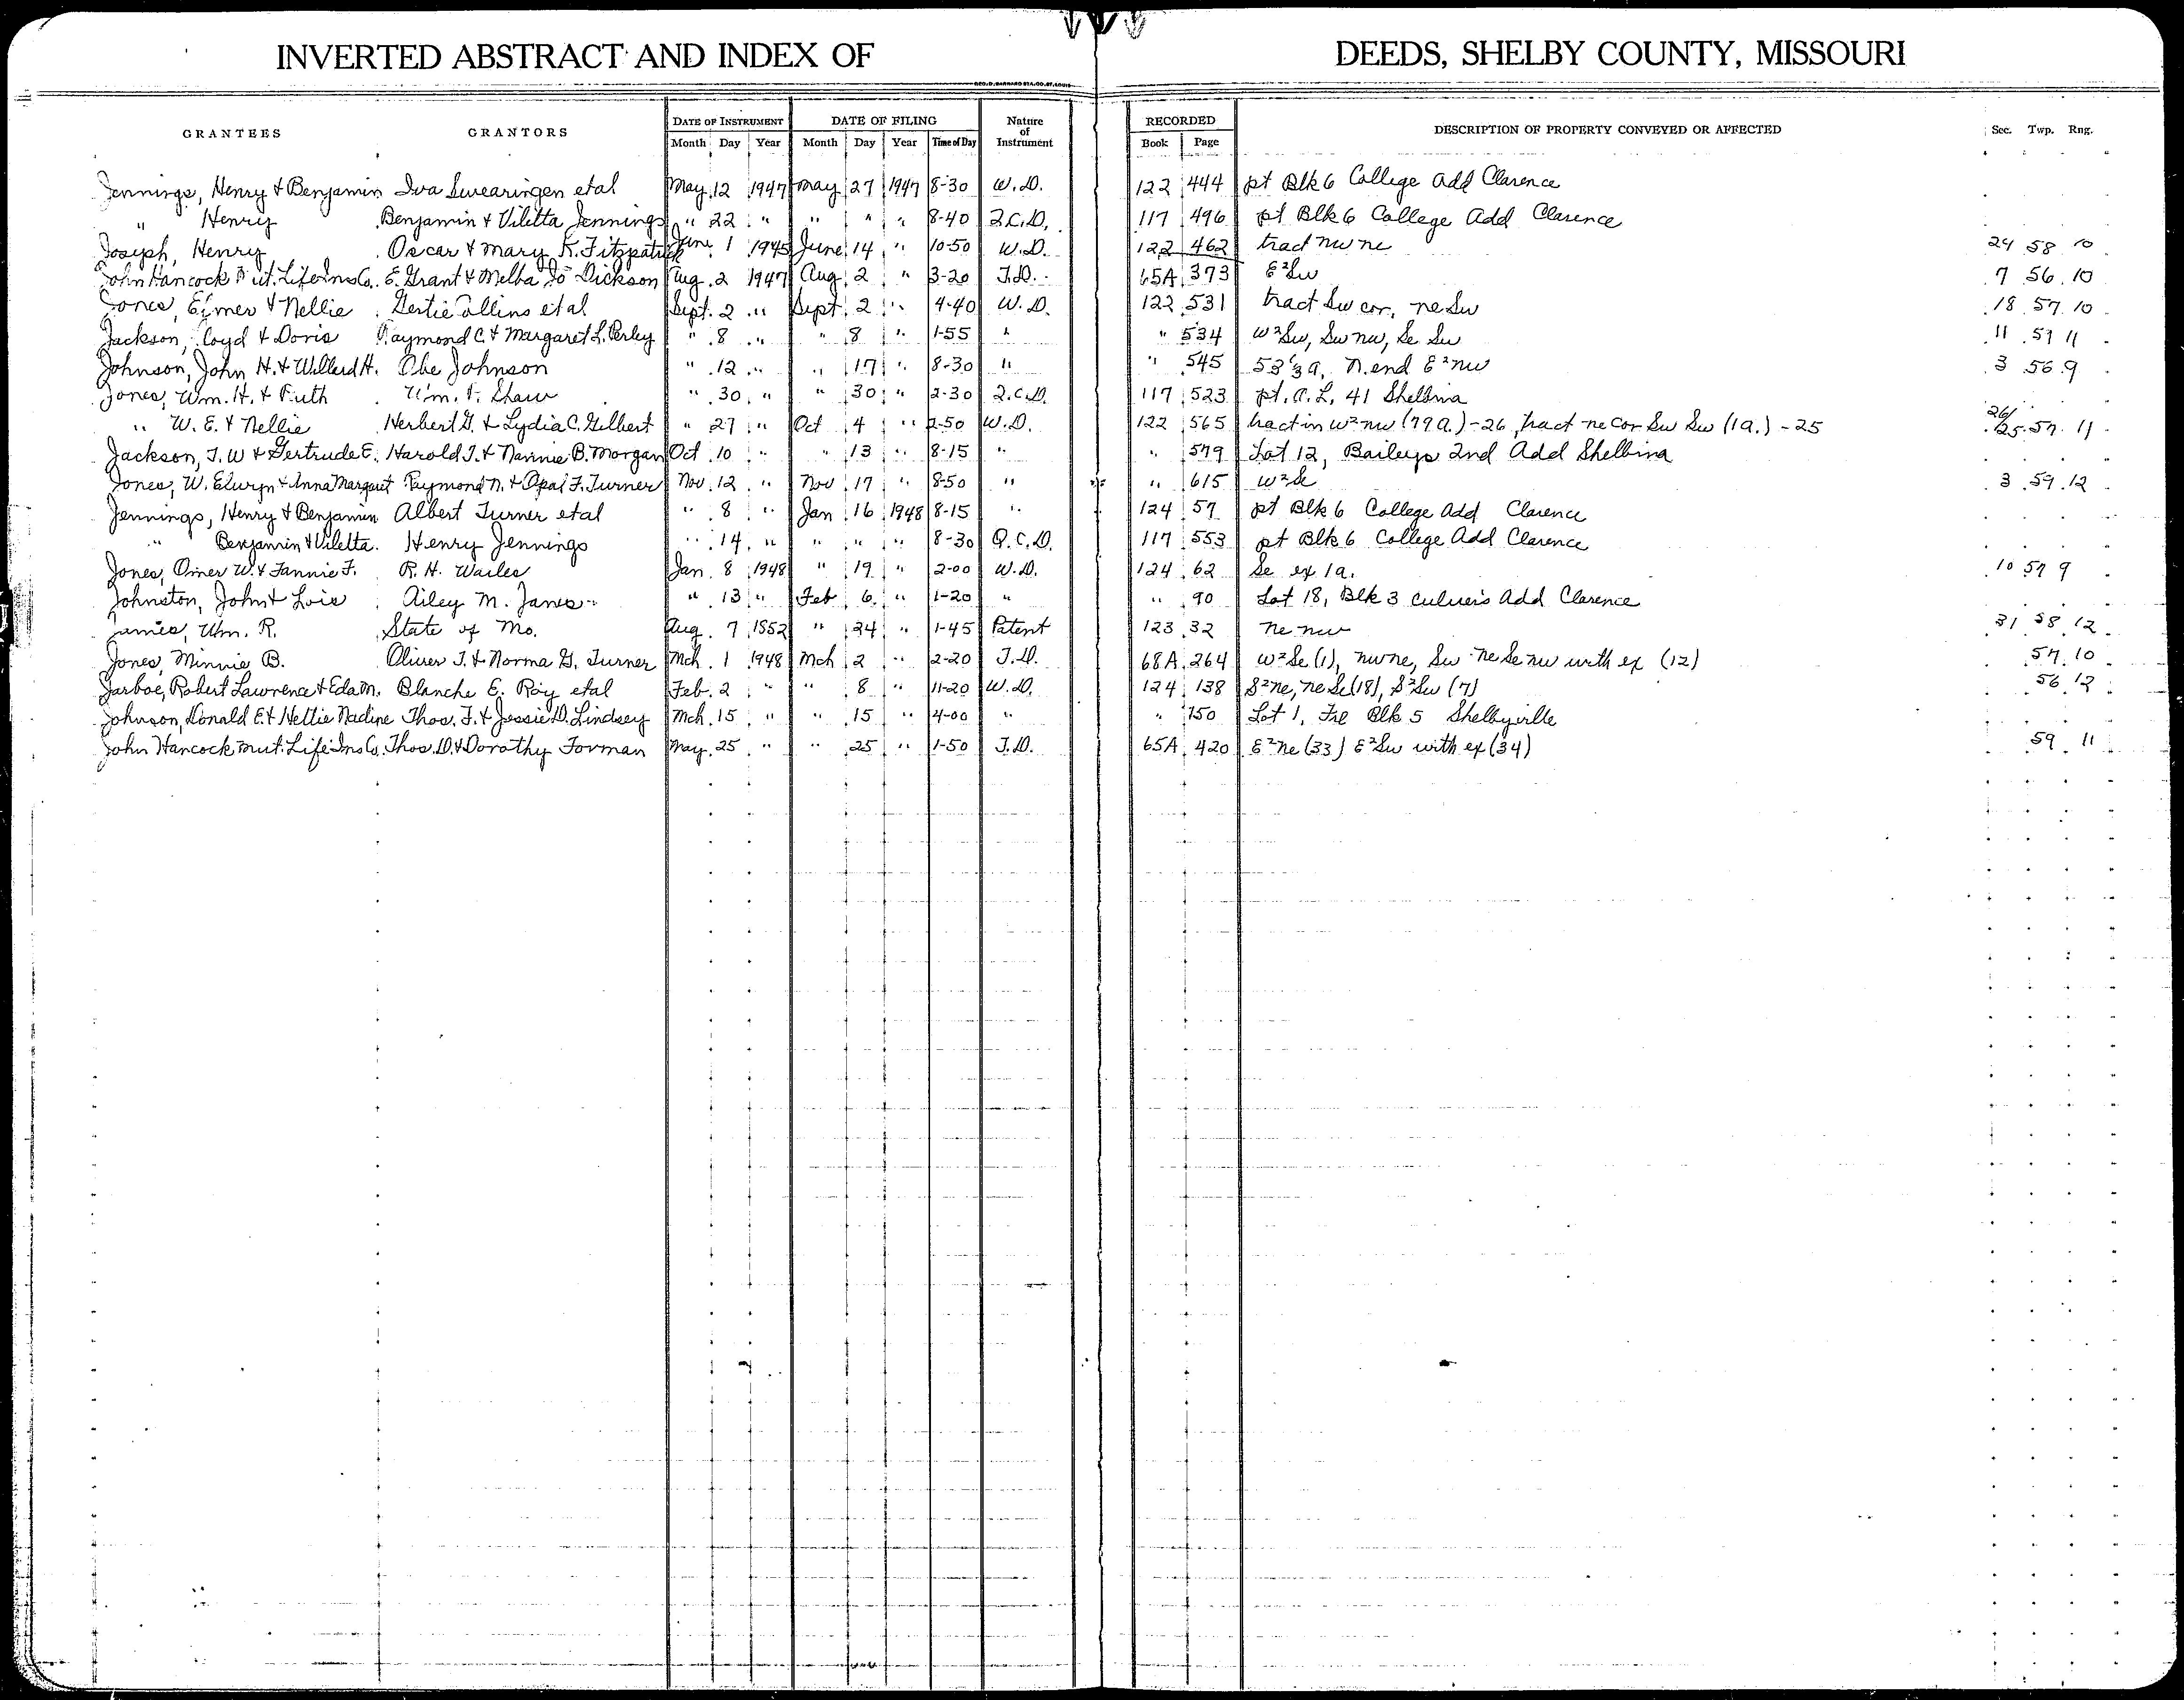 INVERTED ABSTRACT AND INDEX OF DEEDS, SHELBY COUNTY, MISSOURI
GEO. D. BARNARD STA. CO. ST. LOUIS
GRANTEES GRANTORS DATE OF INSTRUMENT DATE OF FILING Nature of Instrument RECORDED DESCRIPTION OF PROPERTY CONVEYED OR AFFECTED Sec. Twp. Rng.
Month Day Year Month Day Year Time of Day Book Page
Jennings, Henry & Benjamin Iva Swearingen etal May 12 1947 May 27 1947 8-30 W.D. 122 444 pt Blk 6 College Add Clarence
" Henry Benjamin & Viletta Jennings " 22 " " " " 8-40 Q.C.D. 117 496 pt Blk 6 College Add Clarence
Joseph, Henry Oscar & Mary K. Fitzpatrick June 1 1945 June 14 " 10-50 W.D. 122 462 tract nw ne 24 58 10
John Hancock Mut. Life Ins Co. E. Grant & Melba Jo Dickson Aug. 2 1947 Aug 2 " 3-20 T.D. 65A 373 E²Sw 7 56 10
Jones, Elmer & Nellie Gertie Collins et al Sept. 2 " Sept 2 " 4-40 W.D. 122 531 tract Sw cor, ne Sw 18 57 10
Jackson, Loyd & Doris Raymond C. & Margaret L. Perley " 8 " " 8 " 1-55 " " 534 W²Sw, Sw nw, Se Sw 11 59 11
Johnson, John H. & Willard H. Abe Johnson " 12 " " 17 " 8-30 " " 545 53⅓ a, N. end E²nw 3 56 9
Jones, Wm. H. & Ruth Wm. F. Shaw " 30 " " 30 " 2-30 Q.C.D. 117 523 pt. A.L. 41 Shelbina
" W. E. & Nellie Herbert G. & Lydia C. Gilbert " 27 " Oct 4 " 2-50 W.D. 122 565 tract in W²nw (79a.) -26, tract ne cor Sw Sw (1a.) -25 26/25 57 11
Jackson, J. W & Gertrude E. Harold T. & Nannie B. Morgan Oct 10 " " 13 " 8-15 " " 579 Lot 12, Baileys 2nd Add Shelbina
Jones, W. Elwyn & Anna Margaret Raymond N. & Opal F. Turner Nov. 12 " Nov 17 " 8-50 " " 615 W²Se 3 59 12
Jennings, Henry & Benjamin Albert Turner etal " 8 " Jan 16 1948 8-15 " 124 57 pt Blk 6 College Add Clarence
" Benjamin & Viletta Henry Jennings " 14 " " " " 8-30 Q.C.D. 117 553 pt Blk 6 College Add Clarence
Jones, Omer W. & Fannie F. R. H. Wailes Jan. 8 1948 " 19 " 2-00 W.D. 124 62 Se ex 1a. 10 57 9
Johnston, John & Lois Ailey M. Janes " 13 " Feb 6 " 1-20 " " 90 Lot 18, Blk 3 Culvers Add Clarence
James, Wm. R. State of Mo. Aug. 7 1852 " 24 " 1-45 Patent 123 32 ne nw 31 58 12
Jones, Minnie B. Oliver T. & Norma G. Turner Mch. 1 1948 Mch 2 " 2-20 T.D. 68A 264 W²Se (1), nw ne, Sw ne Se nw with ex (12) 57 10
Jarboe, Robert Lawrence & Eda M. Blanche E. Roy etal Feb. 2 " " 8 " 11-20 W.D. 124 138 S²ne, ne Se (18), S²Sw (7) 56 12
Johnson, Donald E. & Hettie Nadine Thos. F. & Jessie D. Lindsey Mch. 15 " " 15 " 4-00 " " 150 Lot 1, Frl Blk 5 Shelbyville
John Hancock Mut. Life Ins Co. Thos. D. & Dorothy Forman May. 25 " " 25 " 1-50 T.D. 65A 420 E²ne (33) E²Sw with ex (34) 59 11